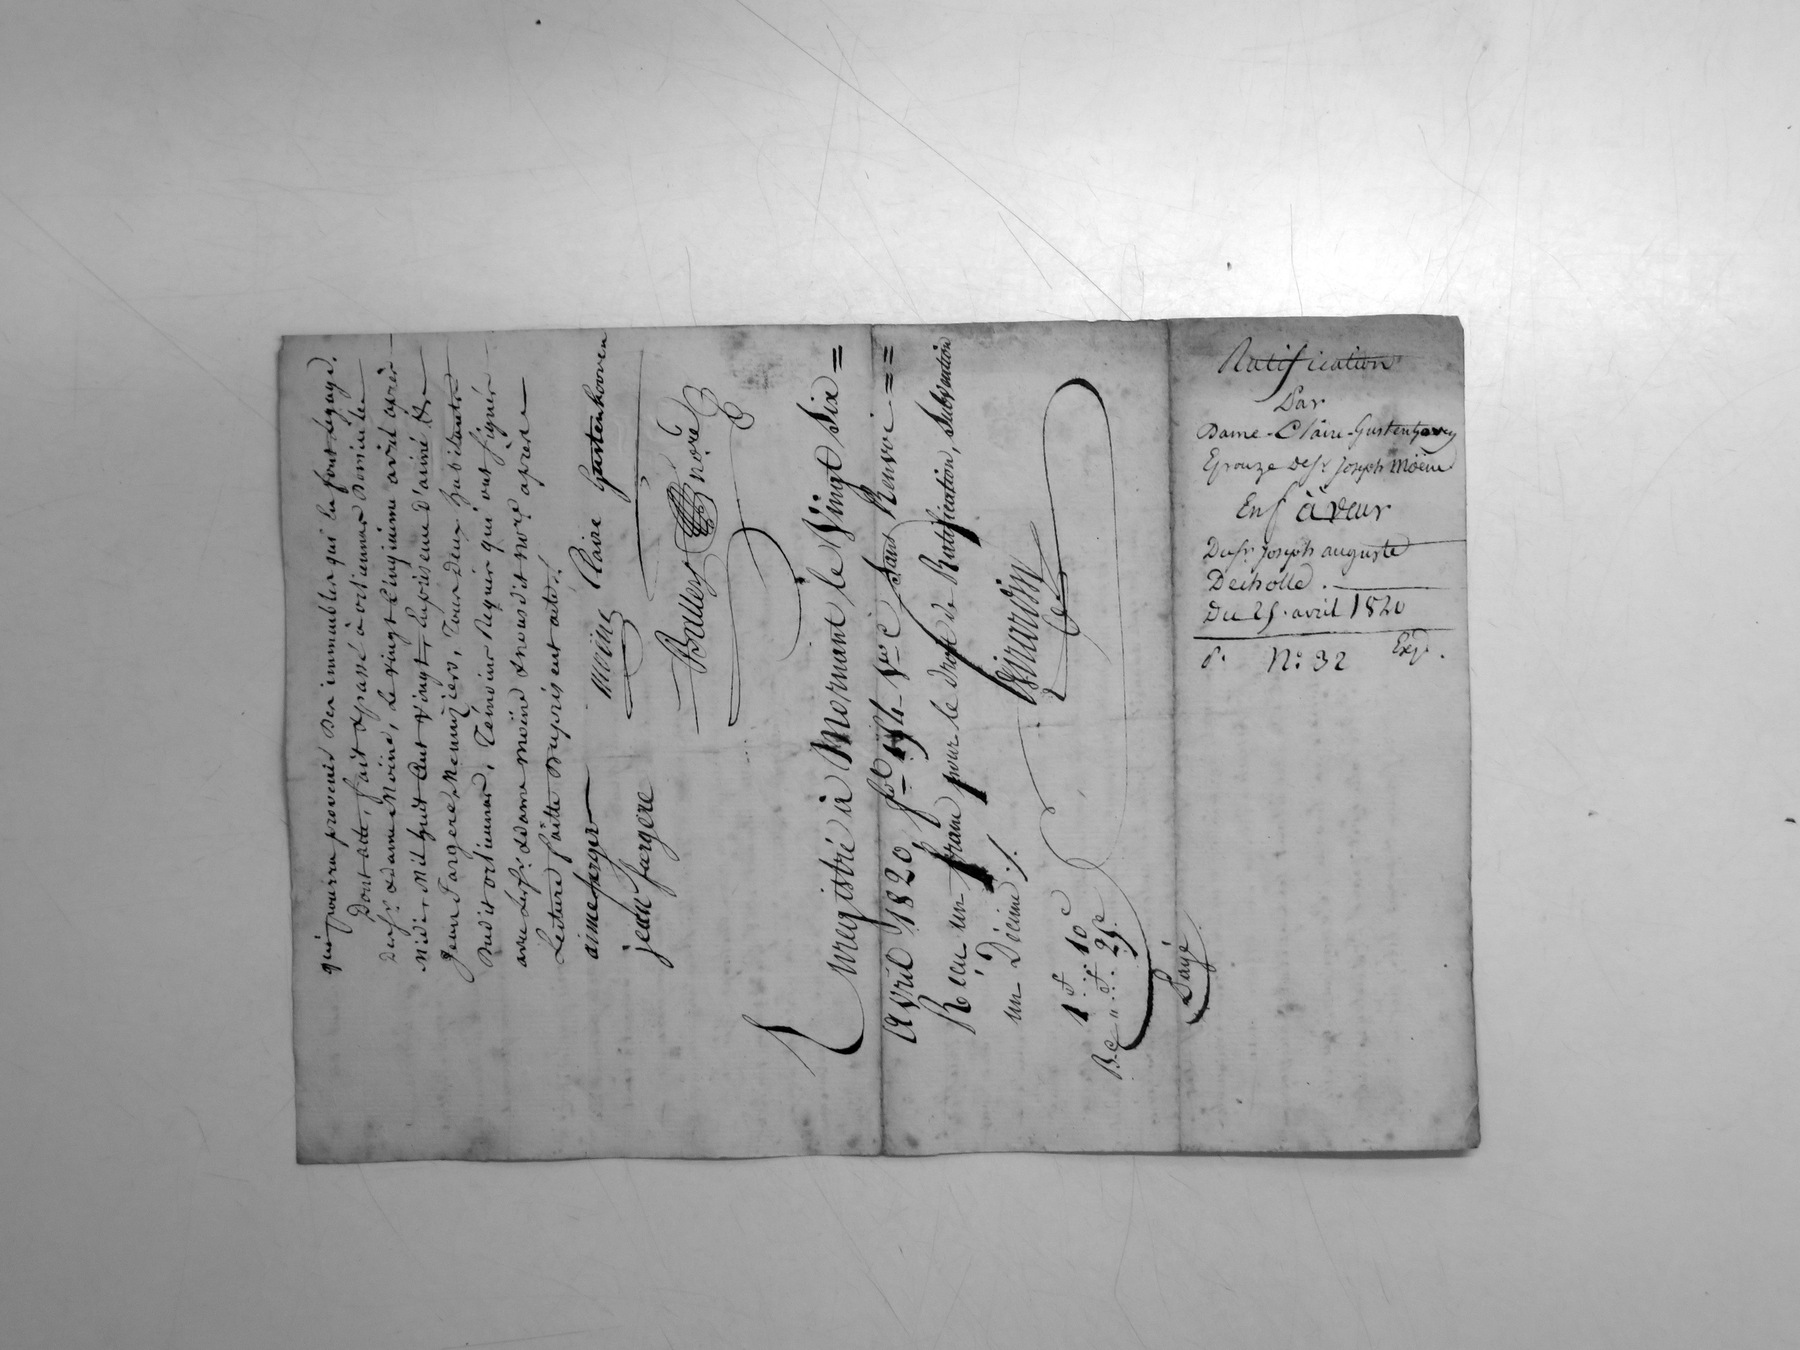 qui pourra provenir des immeubles qui lui sont légués.
Dont acte, fait & passé à ortiennas domicile
desd. sr. & dame Moïne, Le vingt cinquieme avril après
Midi, Mil huit Cent vingt, En présence d'aimé &
jean fargere, Menuiziers, Tous deux habitants
dudit ortiennas, Témoins Requis qui ont signés
avec led. sr. & dame moïne & nousdit nore après
Lecture faitte du présent acte./.
aime farger moine Claire Gustenhoven
jean fargere
Bruller nore
Enregistré à Mornant le Vingt Six =
avril 1820, fol 154 Vso Ce Sans Renvoi ==
Recu un franc pour le droit de Ratification, Subvention
un Décime./.
1 f. 10 c
B. C. " f. 25 c
Payé
Ratification
Par
Dame Claire Gustenhoven
Epouze de sr. Joseph Moëne
En faveur
Du sr. Joseph auguste
Decholle.
Du 25. avril 1820
N: 32 Exp.